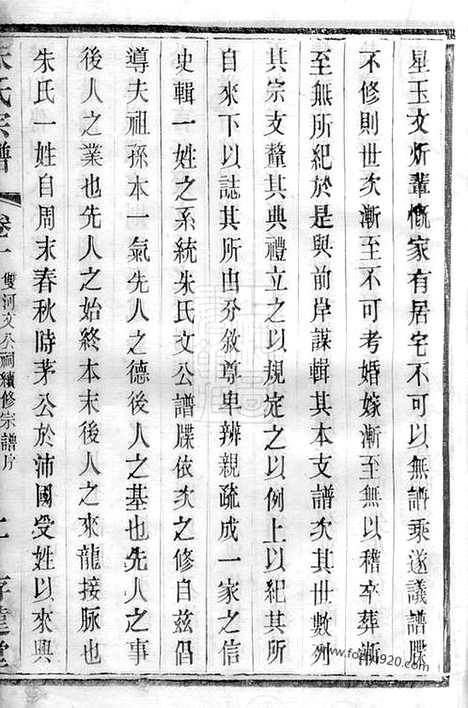 星玉文炘輩慨家有居宅不可以無譜乘遂議譜牒
不修則世次漸至不可考婚嫁漸至無以稽卒葬漸
至無所紀於是與前岸謀輯其本支譜次其世數列
其宗支釐其典禮立之以規定之以例上以紀其所
自來下以誌其所由分敘尊卑辨親疏成一家之信
史輯一姓之系統朱氏文公譜牒依次之修自茲倡
導夫祖孫本一氣先人之德後人之基也先人之事
後人之業也先人之始終本末後人之來龍接脉也
朱氏一姓自周末春秋時茅公於沛國受姓以來興
朱氏宗譜 卷一 雙河文公祠續修宗譜序
www.foxun920.com